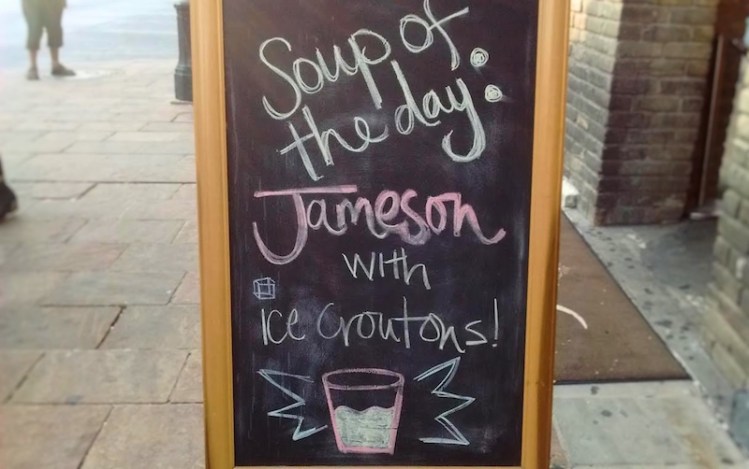 Soup of
the day:
Jameson
with
ice croutons!